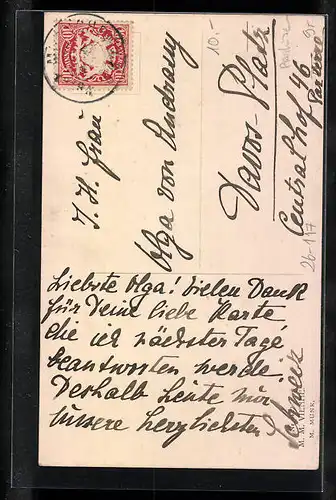 I. H. Frau
Olga von Andrassy
Davos-Platz
Centralhof 46
Parterre
Schweiz
Liebste Olga! Vielen Dank
für Deine liebe Karte
die ich nächster Tage
beantworten werde.
Deshalb heute nur
unsere herzlichsten
10.-
26-117
M. MUNK.